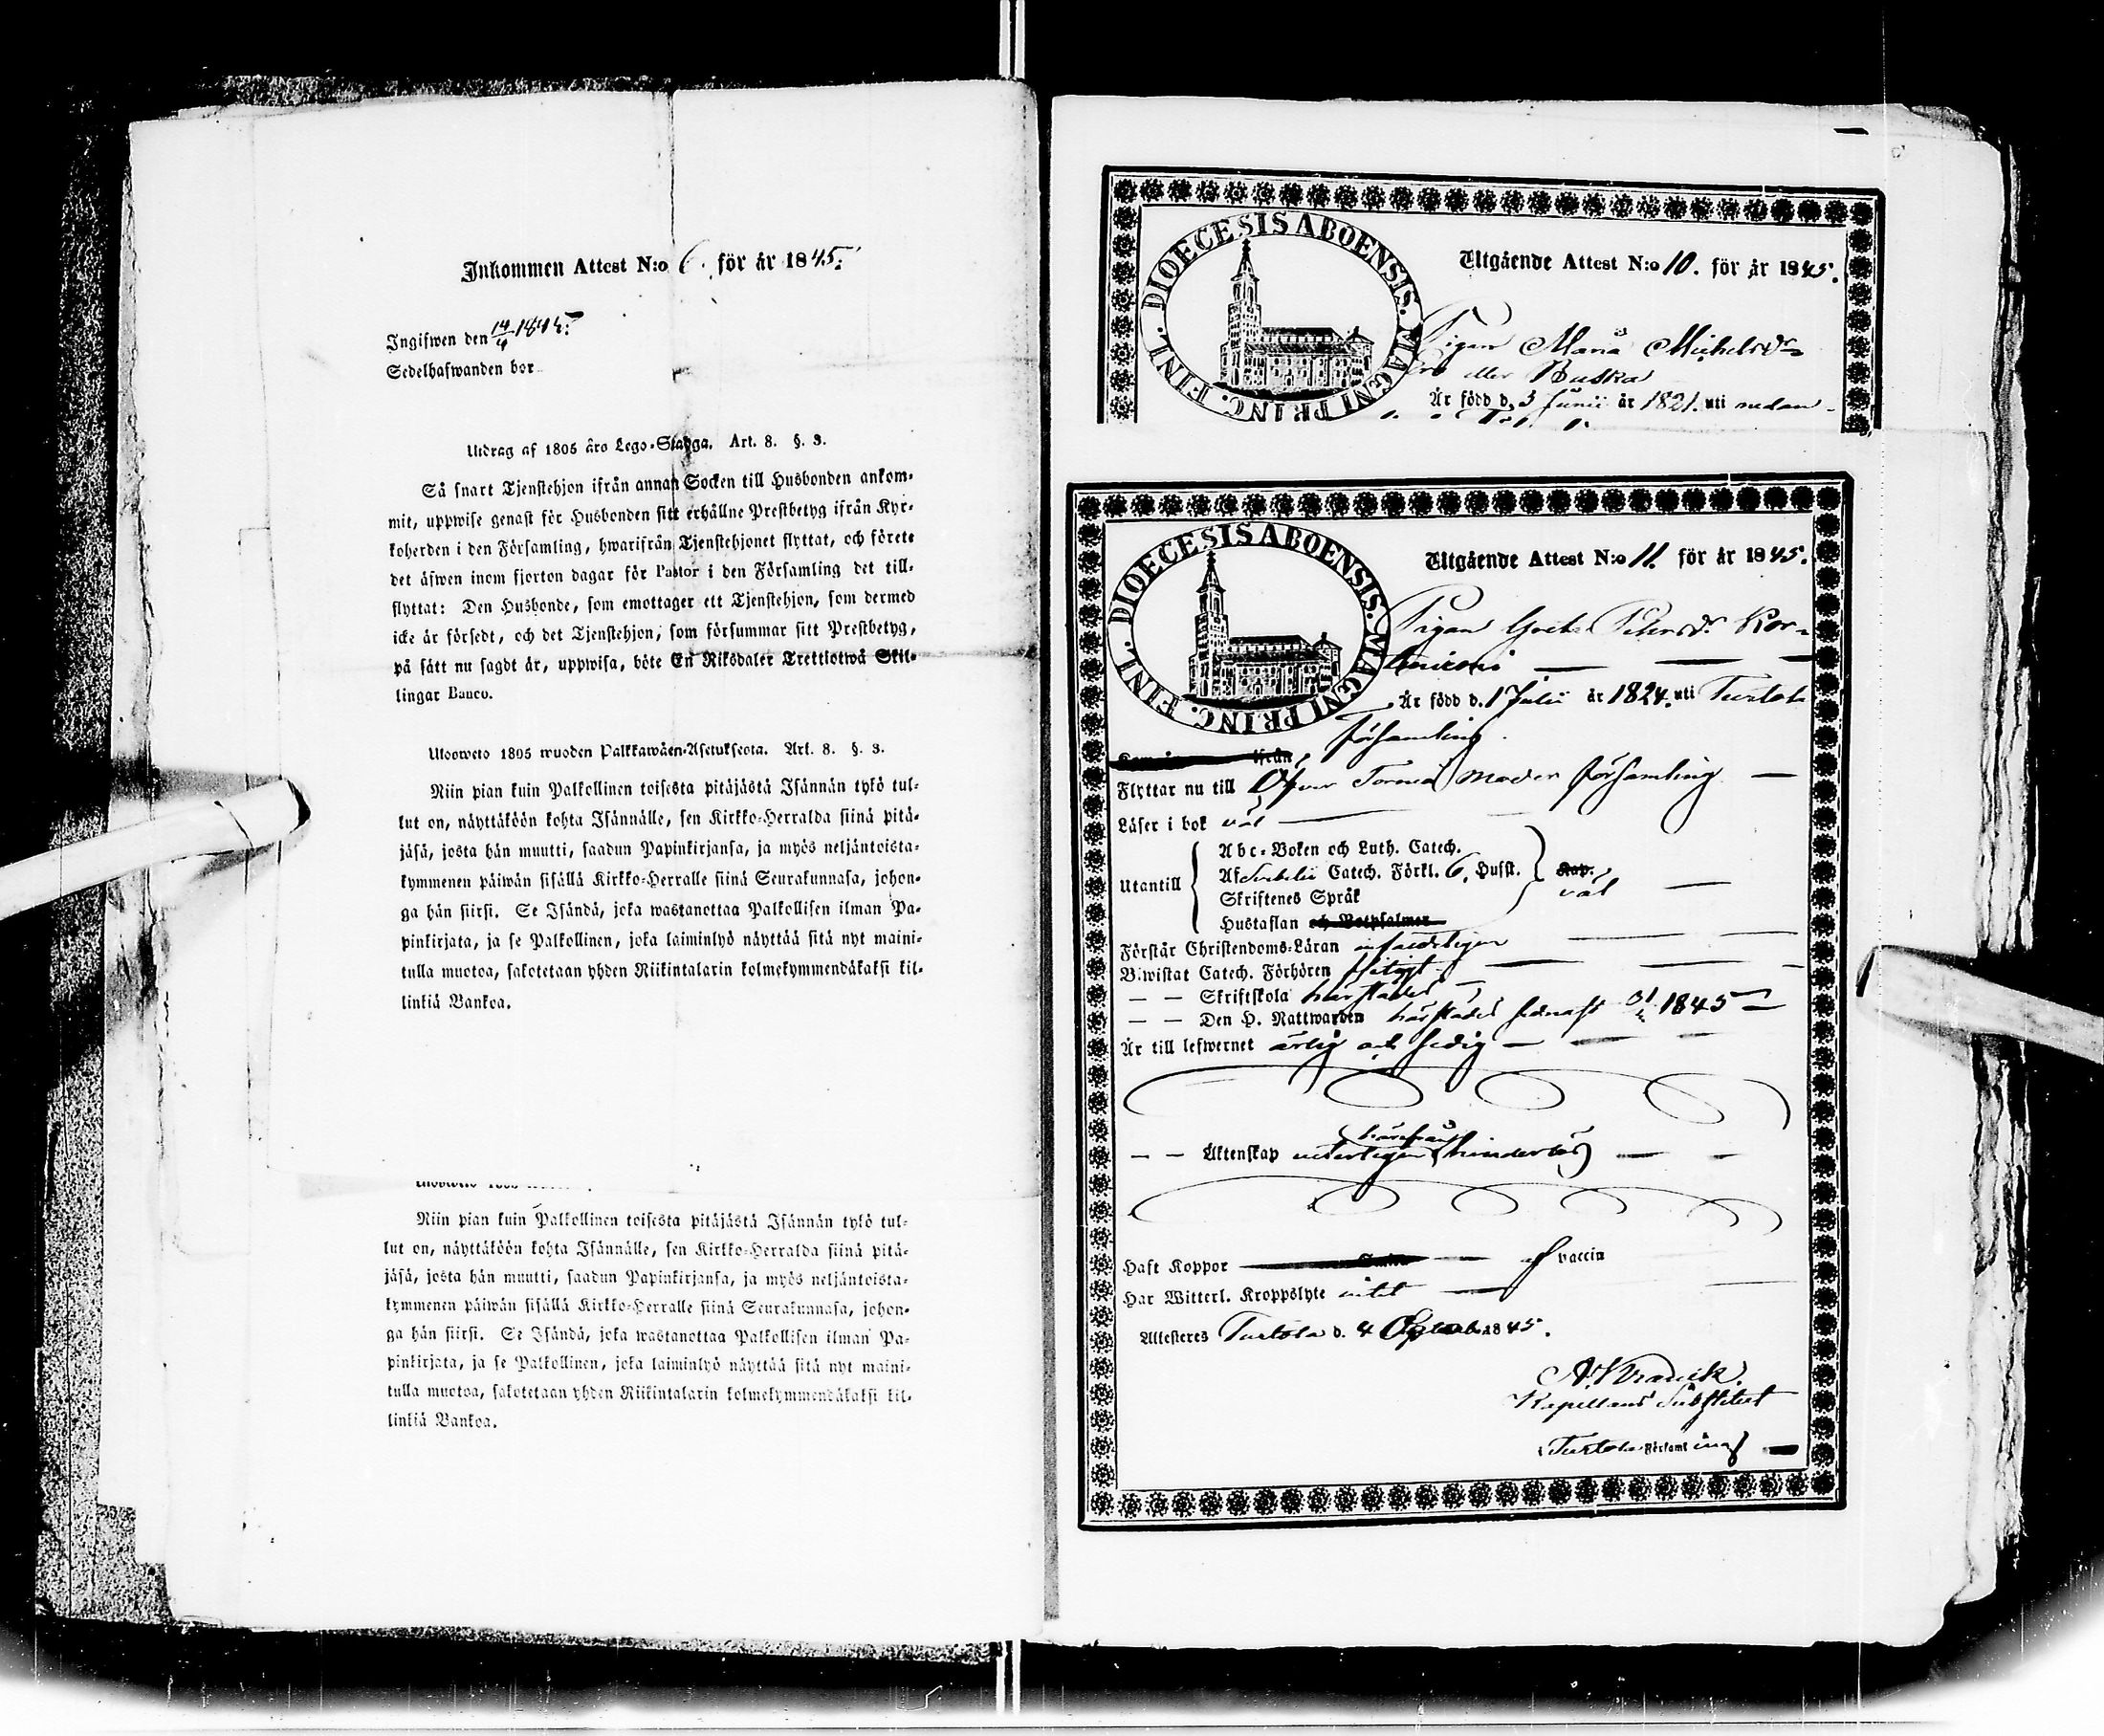 Inkommen Attest N:o 6. för år 1845.
Ingifwen den 14/4 1845.
Sedelhafwanden bor
Utdrag af 1805 års Lego-Stadga. Art. 8. §. 3.
Så snart Tjenstehjon ifrån annan Socken till Husbonden ankom-
mit, uppwise genast för Husbonden sitt erhållne Prestbetyg ifrån Kyr-
koherden i den Församling, hwarifrån Tjenstehjonet flyttat, och förete
det äfwen inom fjorton dagar för Pastor i den Församling det till-
flyttat: Den Husbonde, som emottager ett Tjenstehjon, som dermed
icke är försedt, och det Tjenstehjon, som försummar sitt Prestbetyg,
på sätt nu sagdt är, uppwisa, böte En Riksdaler Trettiotwå Skil-
lingar Banco.
Ulosweto 1805 wuoden Palkkawäen-Asetuksesta. Art. 8. §. 3.
Niin pian kuin Palkollinen toisesta pitäjästä Isännän tykö tul-
lut on, näyttäköön kohta Isännälle, sen Kirkko-Herralda siinä pitä-
jäsä, josta hän muutti, saadun Papinkirjansa, ja myös neljäntoista-
kymmenen päiwän sisällä Kirkko-Herralle siinä Seurakunnasa, johon-
ga hän siirsi. Se Isändä, joka wastanottaa Palkollisen ilman Pa-
pinkirjata, ja se Palkollinen, joka laiminlyö näyttää sitä nyt maini-
tulla muotoa, sakotetaan yhden Riikintalarin kolmekymmendäkaksi kil-
linkiä Bankoa.
Niin pian kuin Palkollinen toisesta pitäjästä Isännän tykö tul-
lut on, näyttäköön kohta Isännälle, sen Kirkko-Herralda siinä pitä-
jäsä, josta hän muutti, saadun Papinkirjansa, ja myös neljäntoista-
kymmenen päiwän sisällä Kirkko-Herralle siinä Seurakunnasa, johon-
ga hän siirsi. Se Isändä, joka wastanottaa Palkollisen ilman Pa-
pinkirjata, ja se Palkollinen, joka laiminlyö näyttää sitä nyt maini-
tulla muotoa, sakotetaan yhden Riikintalarin kolmekymmendäkaksi kil-
linkiä Bankoa.
DIOECESIS ABOENSIS. MAGNI PRINC. FINL.
Utgående Attest N:o 10. för år 1845.
Pigan Maria Michelsdr
eller Buska
Är född d. 3 Junii år 1821. uti nedan-
DIOECESIS ABOENSIS. MAGNI PRINC. FINL.
Utgående Attest N:o 11. för år 1845.
Pigan Greta Petersdr Kor-
Är född d. 1 Julii år 1824. uti Turtola
församling.
ifrån
Flyttar nu till Öfver Torneå moder församling
Läser i bok väl
Abc-Boken och Luth. Catech.
Utantill Af Svebelii Catech. Förkl. 6, Hufst. Kap. väl
Skriftenes Språk
Hustaflan och Botpsalmer
Förstår Christendoms-Läran
Biwistat Catech. Förhören flitigt
— — Skriftskola härstädes
— — Den H. Nattwarden härstädes sednast 1845
Är till lefwernet ärlig och sedig
härifrån
— — Äktenskap hinderlös
Haft Koppor vaccin
Har Witterl. Kroppslyte intet
Attesteres Turtola d. 4 1845.
Kapellans Substitut
Turtola Församling